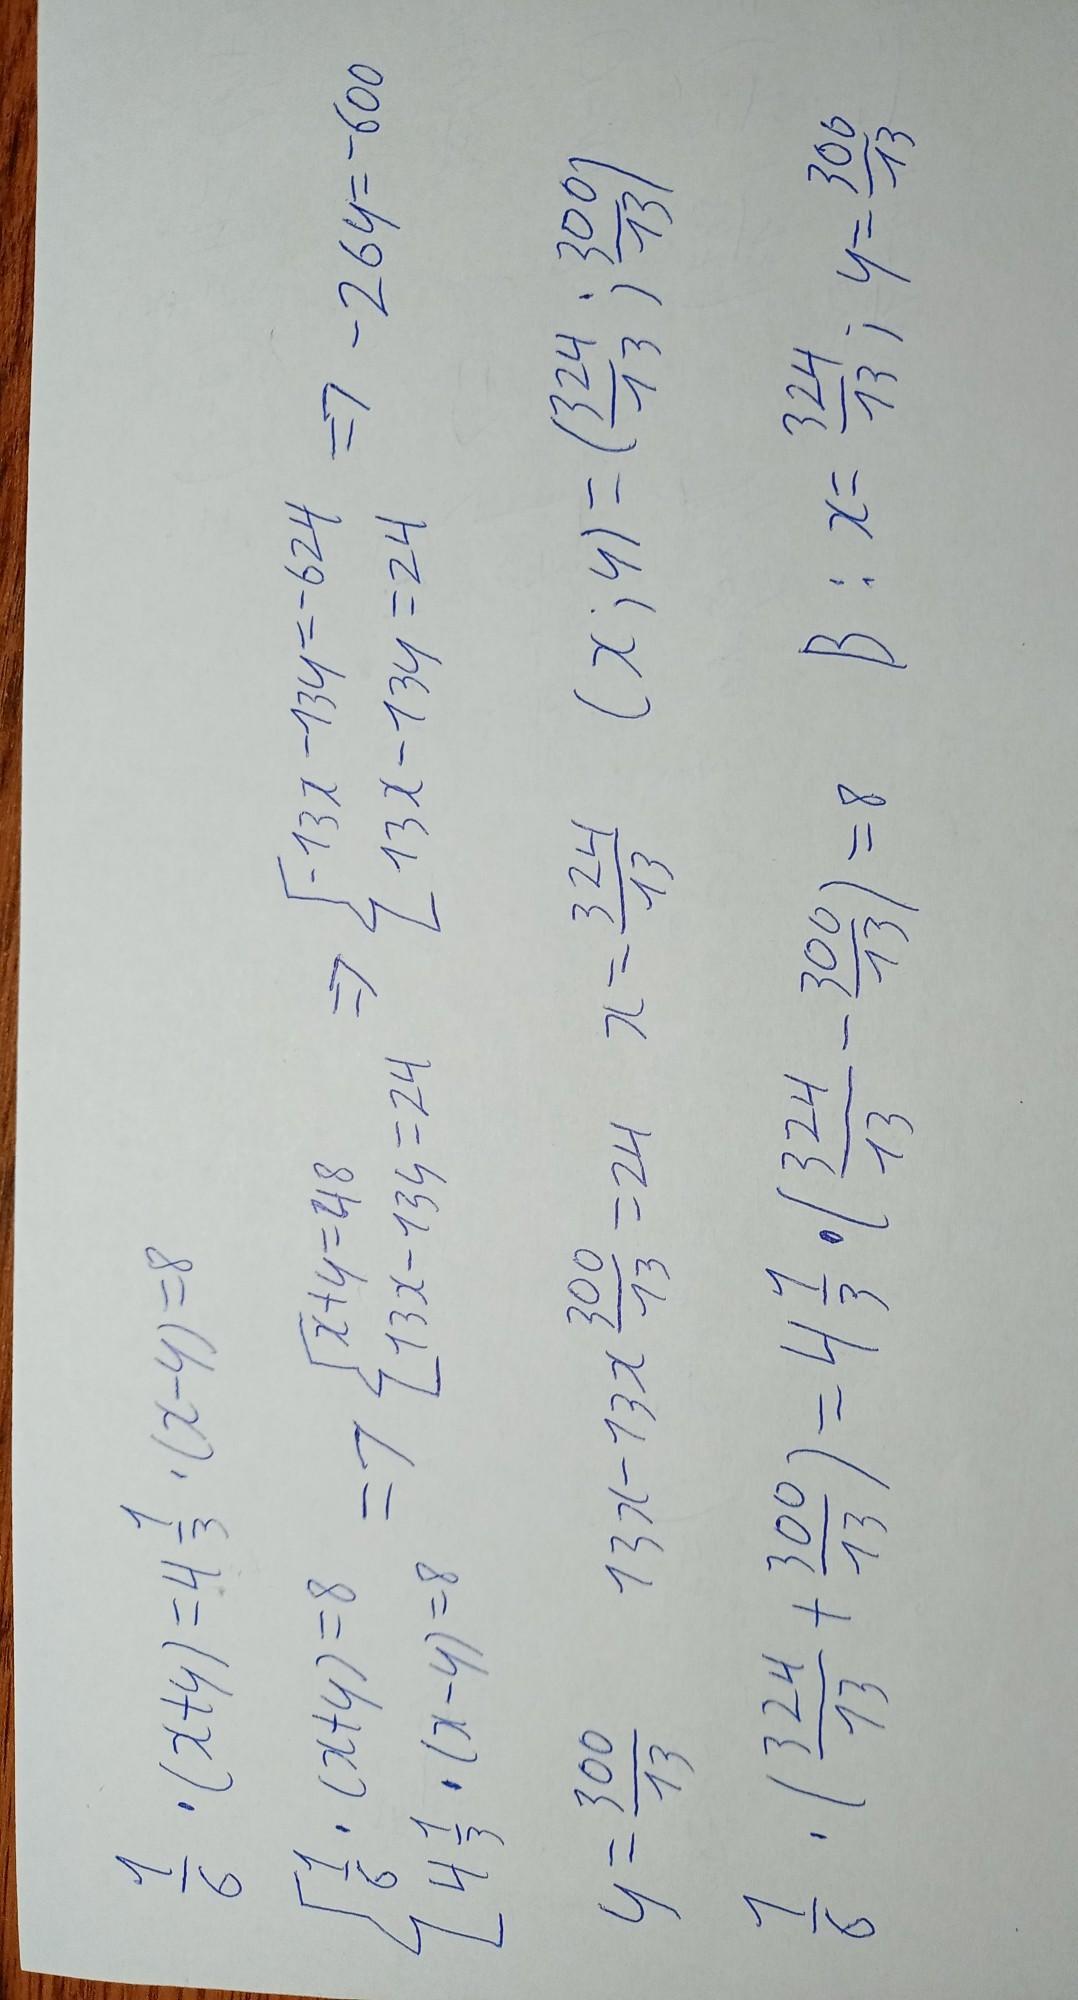 1/6 · (x+y) = 4 1/3 · (x-y) = 8
{ 1/6 · (x+y) = 8 => { x+y = 48 => { -13x - 13y = -624 => -26y = -600
4 1/3 · (x-y) = 8 13x - 13y = 24 13x - 13y = 24
y = 300/13 13x - 13x 300/13 = 24 x = 324/13 (x ; y) = (324/13 ; 300/13)
1/6 · (324/13 + 300/13) = 4 1/3 · (324/13 - 300/13) = 8 B : x = 324/13 ; y = 300/13